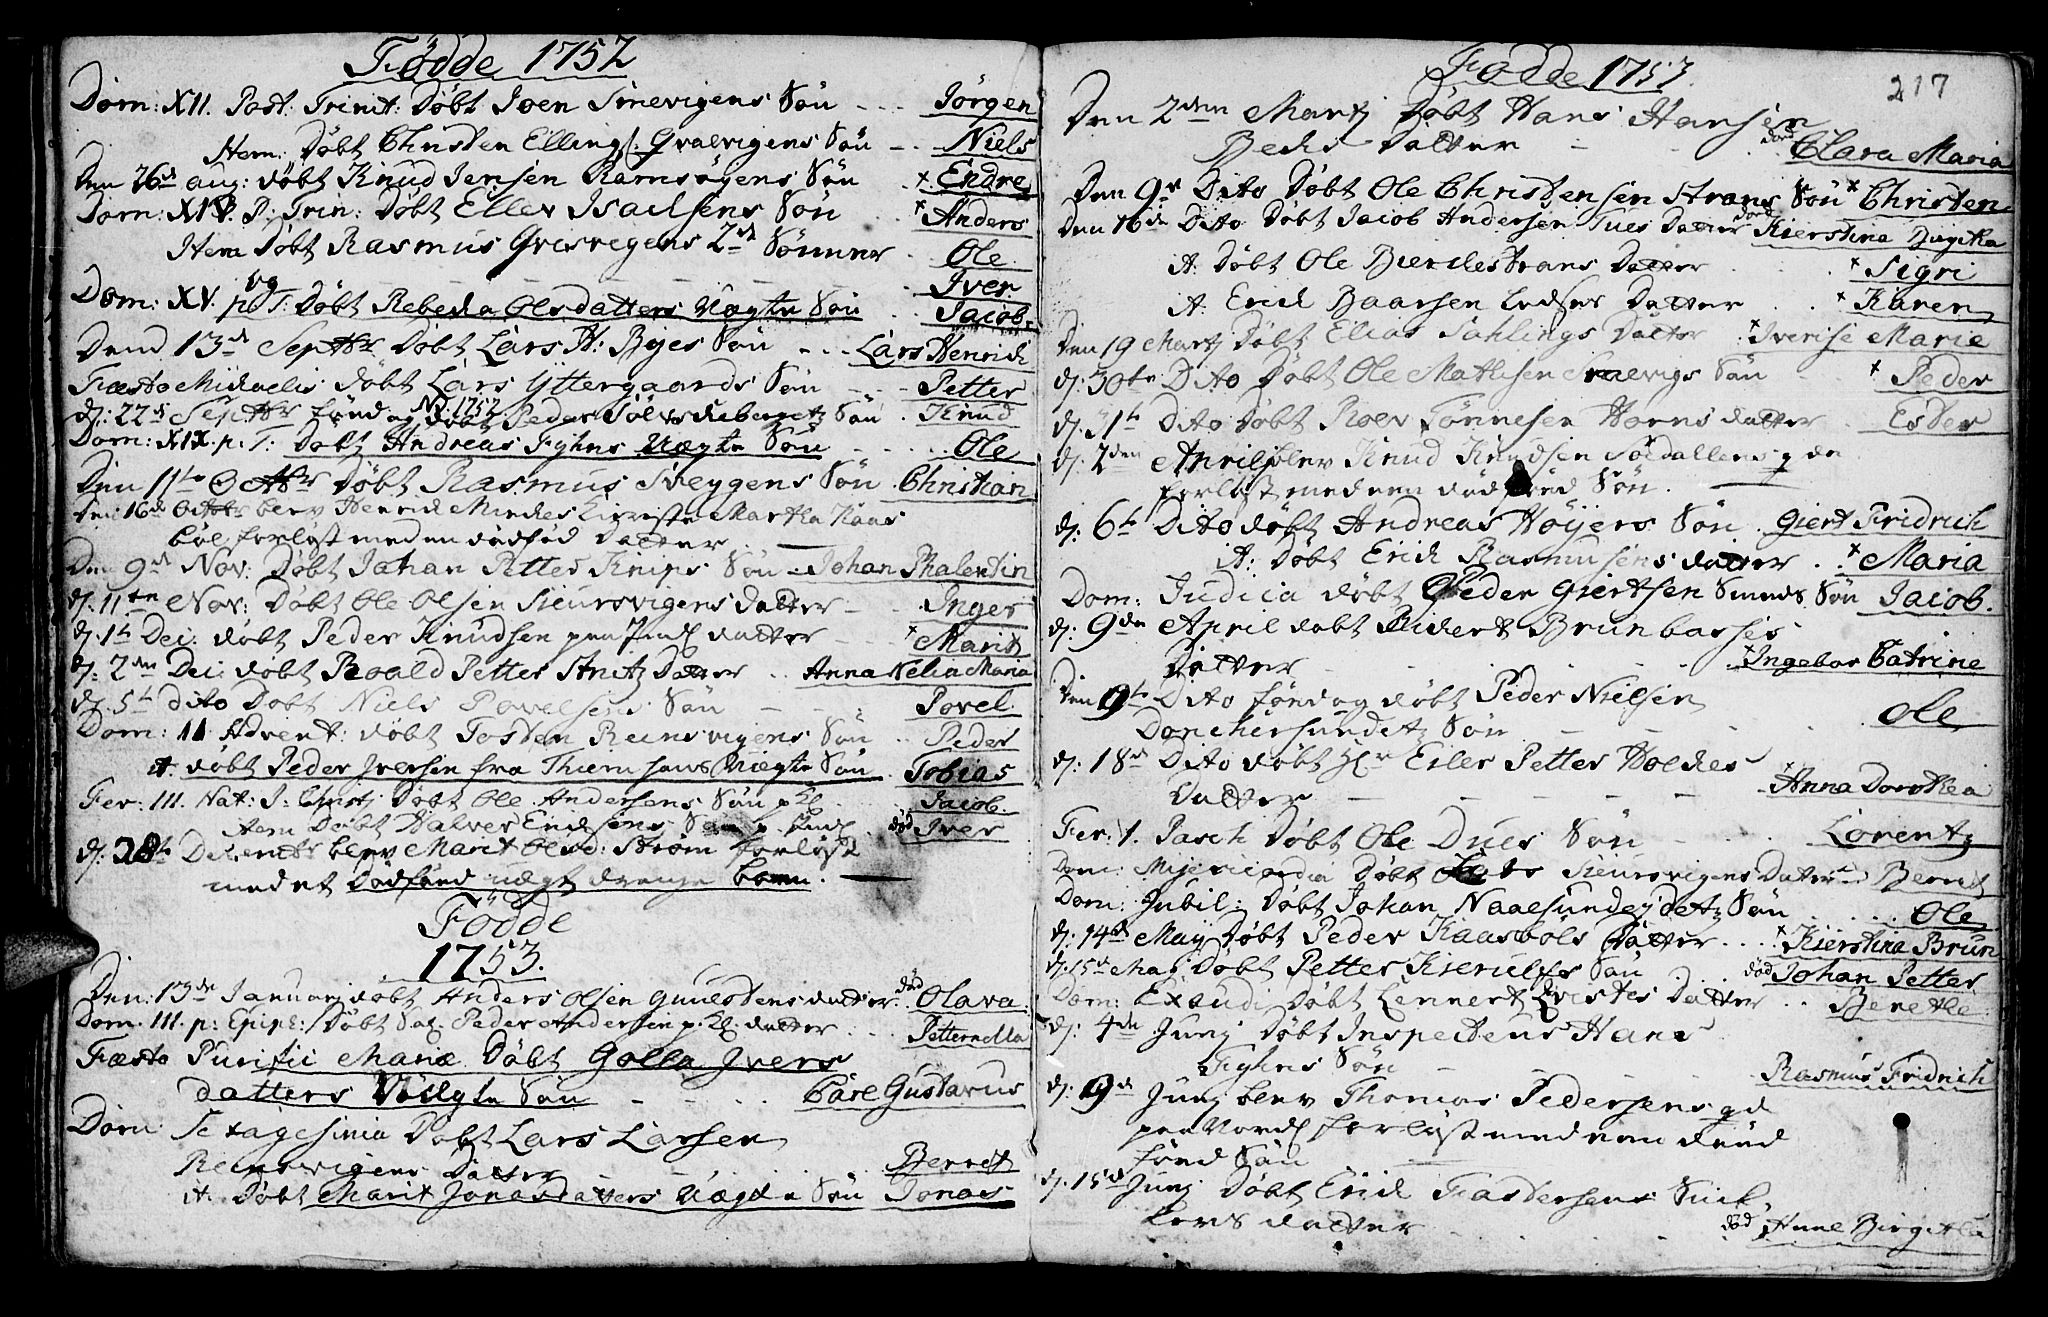 Födde 1752
Dom: XII. Post. Trinit: Döbt Joen Sinevigens Sön - - - Jörgen
Item: Döbt Christen Ellings: Qvalvigens Sön - - Niels
Den 26de aug: döbt Knud Jensen Ramsöyens Sön . . × Endre
Dom: XIV. P: Trin: Döbt Eller Isachsens Sön × Anders
Item Döbt Rasmus Grisvigens 2de Sönner . . Ole
Iver
Dom: XV. p T: Döbt Rebecka Olsdatters Uægte Sön . . Jacob
Dend 13de Septbr Döbt Lars H: Byes Sön - - - Lars Henrich
Fæsto Michaelis döbt Lars Yttergaards Sön - - Petter
NB 1752
d: 22de Septbr föd og döbt Peder Sölverdebergets Sön . Knud
Dom: XIX. p. T: Döbt Andreas Fyhns Uægte Sön - - - Ole
Den 11te Octbr Döbt Rasmus Sveygens Sön . Christian
Den 16de Octobr blev Henrich Kieriste Martha Kaas
böl forlöst med en dödföd Datter . —
Den 9de Nov: Döbt Johan Petter Knips Sön - Johan Phalentin
d: 11te Nov: Döbt Ole Olsen Sieursvigens datter - - Inger
d: 1te Dec: döbt Peder Knudsen paa Datter × Marit
d: 2den Dec: döbt Roald Petter Stritz Datter . . Anna Nelia Maria
d: 5te dito Döbt Niels Povelsens Sön - - - Povel
Dom: II Advent: döbt Tosten Reinsvigens Sön . . Peder
it. döbt Peder Iversen fra Thiemsaus Uægte Sön . Tobias
Fer: III. Nat: J: Christj Döbt Ole Andersens Sön p Kl . . Jacob
Item Döbt Halver Erichsens Sön p. död Iver
d: 28te Decembr blev Marit Olsd: Ström forlöst
med et Dödföd uægt drenge barn. —
Födde
1753.
Den: 13de Januarj döbt Anders Olsen Gulestens datter . död Olava
Dom. III. p: Epiph: Döbt Sal. Peder Andersen p. Kl: datter . . Petternella
Fæsto Purific Mariæ Döbt Golla Ivers
datters Uægte Sön - - . . Carl Gustavus
Dom: Sexagesima Döbt Lars Larsen
Reinsvigens Datter - - . . Berret
it. Döbt Marit Jonasdatters Uægte Sön Jonas
Födde 1753.
217
Den 2den Martj Döbt Hans Hansen
Becks Datter - - död Clara Maria
Den 9de Dito Döbt Ole Christensen Strans Sön × Christen
Den 16de Dito Döbt Jacob Andersen Tues Datter död Kierstina Birgitha
it. Döbt Ole Bierckestrans Datter . . × Sigri
it. Erich Baarsen Lodses Datter . . × Karen
Den 19 Martj Döbt Elias Sahlings Datter : × Iverise Marie
d: 30te Dito Döbt Ole Mathisen Sön - × Peder
d: 31te Dito Döbt Roer Tönnesen Horns datter . Esder
d: 2den Aprilj blev Knud Knudsen Söedallens q de
forlöst med een död föd Sön. —
d: 6te Dito döbt Andreas Höyers Sön . Giert Fridrich
it: Döbt Erich Rasmusens datter . . × Maria
Dom: Judica döbt Peder Giertsen Smeds Sön Jacob.
d: 9de April döbt Rickert Brunbasses
Datter - - - - × Ingebor Catrine
Den 9te Dito föd og döbt Peder Nielsen
Donckersundets Sön - - - Ole
d: 18de Dito döbt Hr Eiler Petter Holckes
Datter - - - - × Anna Dorothea
Fer: 1. Pasch Döbt Ole Dues Sön - . . Lorentz
Dom: Misericordia Döbt Sieursvigens Datter - Berret
Dom: Jubil: Döbt Johan Naalsundeydetz Sön . . . . Ole
d: 14de Maij Döbt Peder Kaasböls Datter . . . × Kierstina Brun
d: 15de Maj Döbt Petter Kierulfs Sön . . död Johan Petter
Dom: Exaudi Döbt Lennert Datter . . Berethe
d: 4de Junj Döbt Inspecteur Hans
Fyhns Sön - - - Rasmus Fridrich
d: 9de Junj blev Thomas Pedersens qd
paa Nordl forlöst med een död
föd Sön
d. 15de Junj Döbt Erich Fastersens
kers datter - - . . död Anne Birgitha